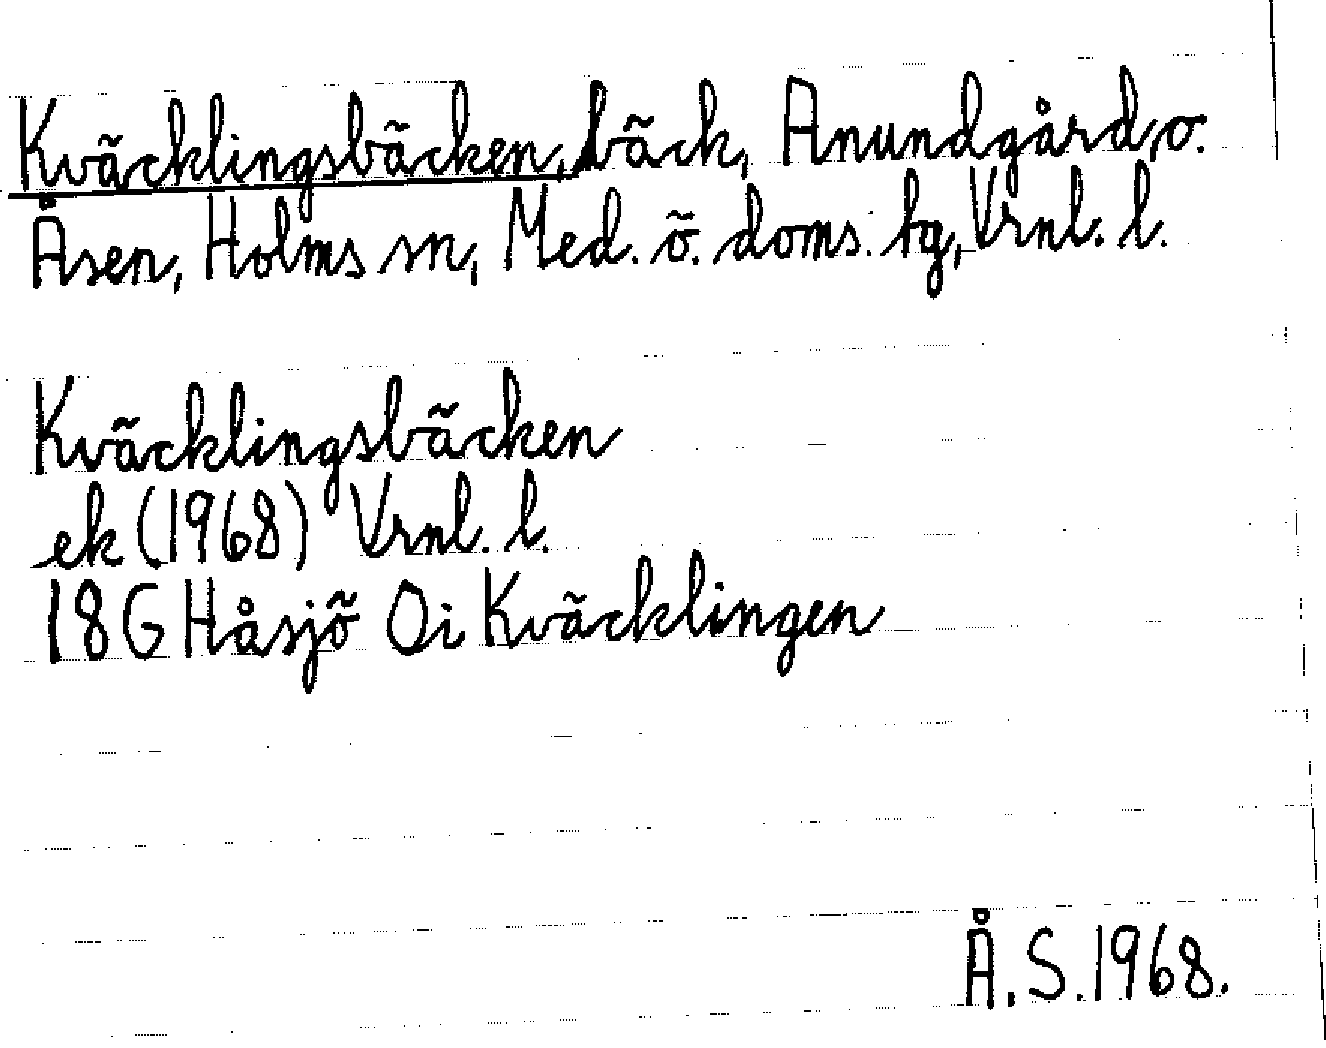 Kväcklingsbäcken, bäck, Anundgård o.
Åsen, Holms sn, Med. ö. doms. hg, Vrnl. l.
Kväcklingsbäcken
ek (1968) Vrnl. l.
18G Håsjö Oi Kväcklingen
Å.S.1968.